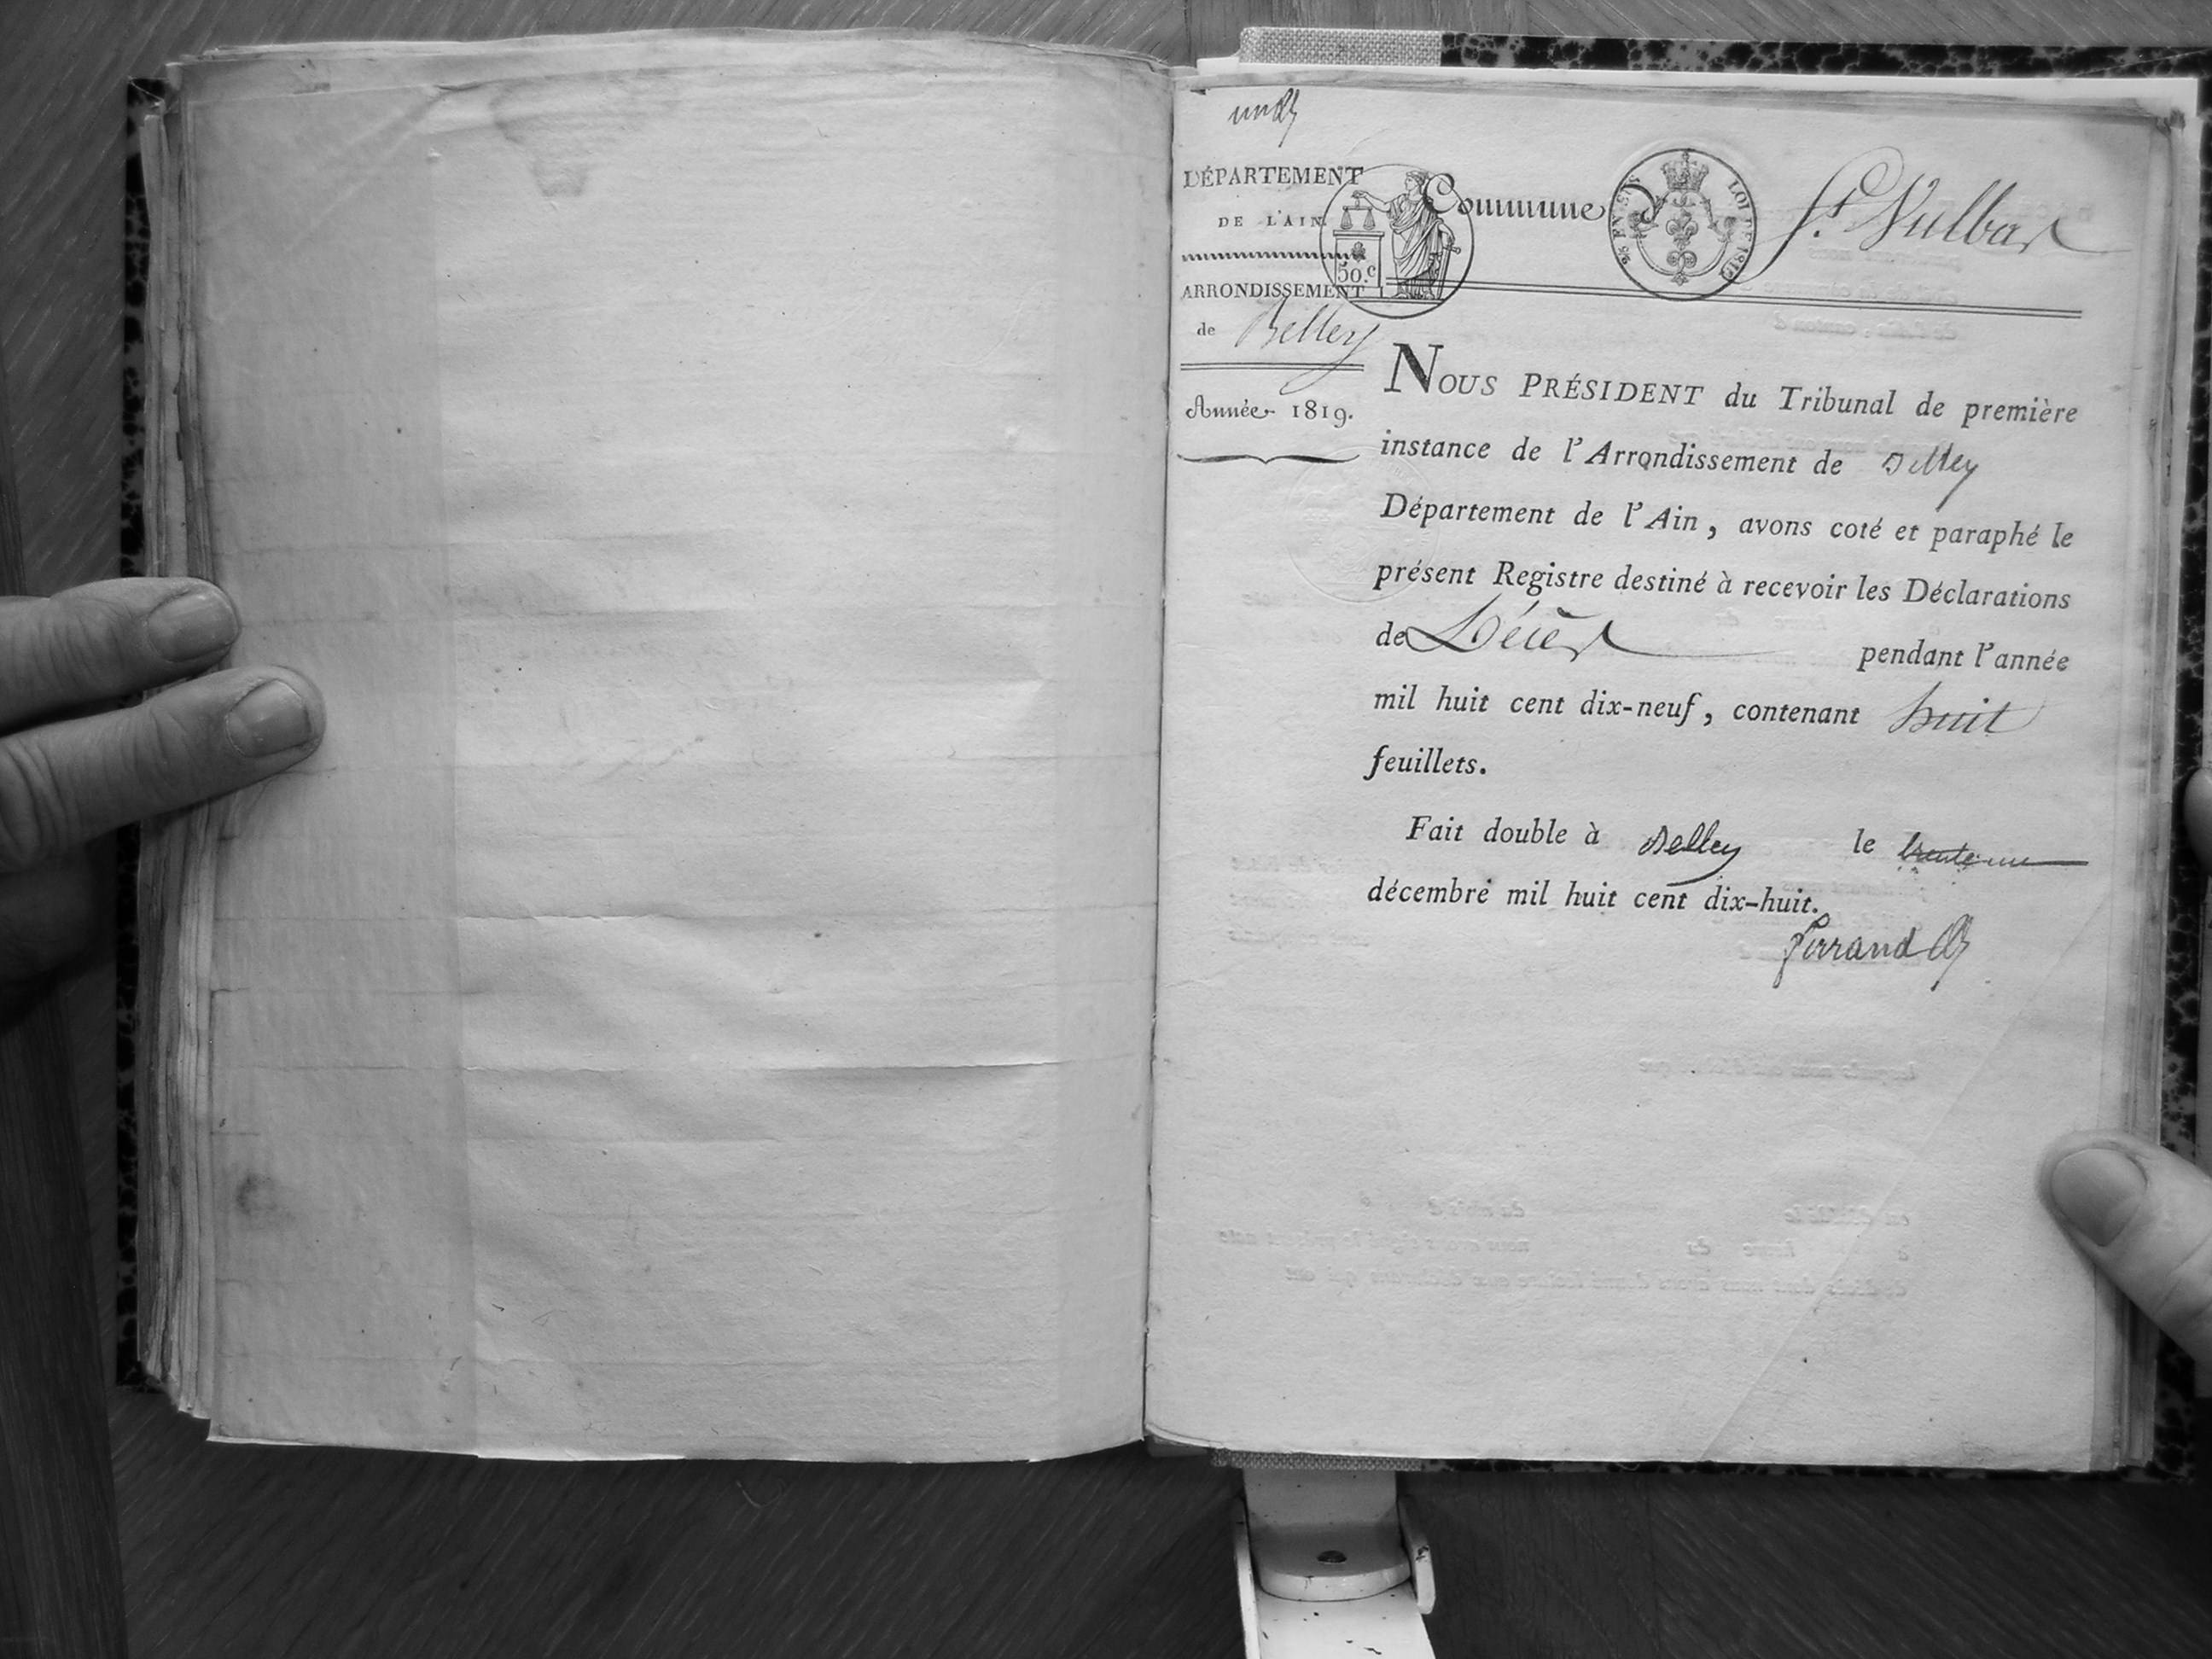 un
DÉPARTEMENT
DE L'AIN.
Commune de St. Vulbas
50.c
25 EN SUS
LOI DE 1816
ARRONDISSEMENT
de Belley
Année 1819.
NOUS PRÉSIDENT du Tribunal de première
instance de l'Arrondissement de Belley
Département de l'Ain, avons coté et paraphé le
présent Registre destiné à recevoir les Déclarations
de Décès pendant l'année
mil huit cent dix-neuf, contenant huit
feuillets.
Fait double à Belley le trente un
décembre mil huit cent dix-huit.